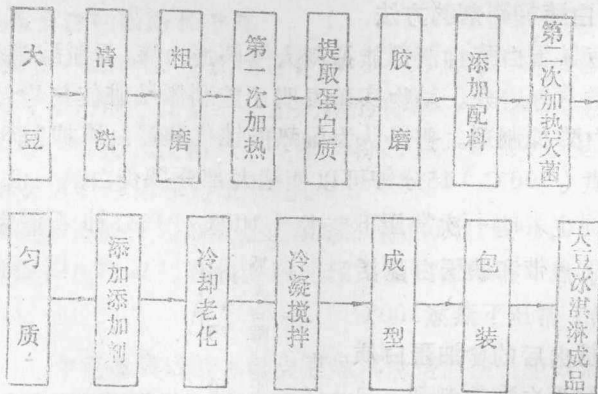 大豆
清洗
粗磨
第一次加热
提取蛋白质
胶磨
添加配料
第二次加热灭菌
匀质
添加添加剂
冷却老化
冷凝搅拌
成型
包装
大豆冰淇淋成品